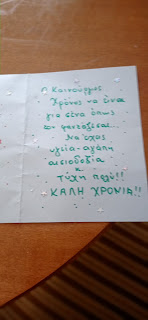 Ο Καινούργιος
Χρόνος να είναι
για σένα όπως
τον φαντάζεσαι...
Να έχεις
υγεία-αγάπη
αισιοδοξία
κ
τύχη πολύ!!
ΚΑΛΗ ΧΡΟΝΙΑ!!